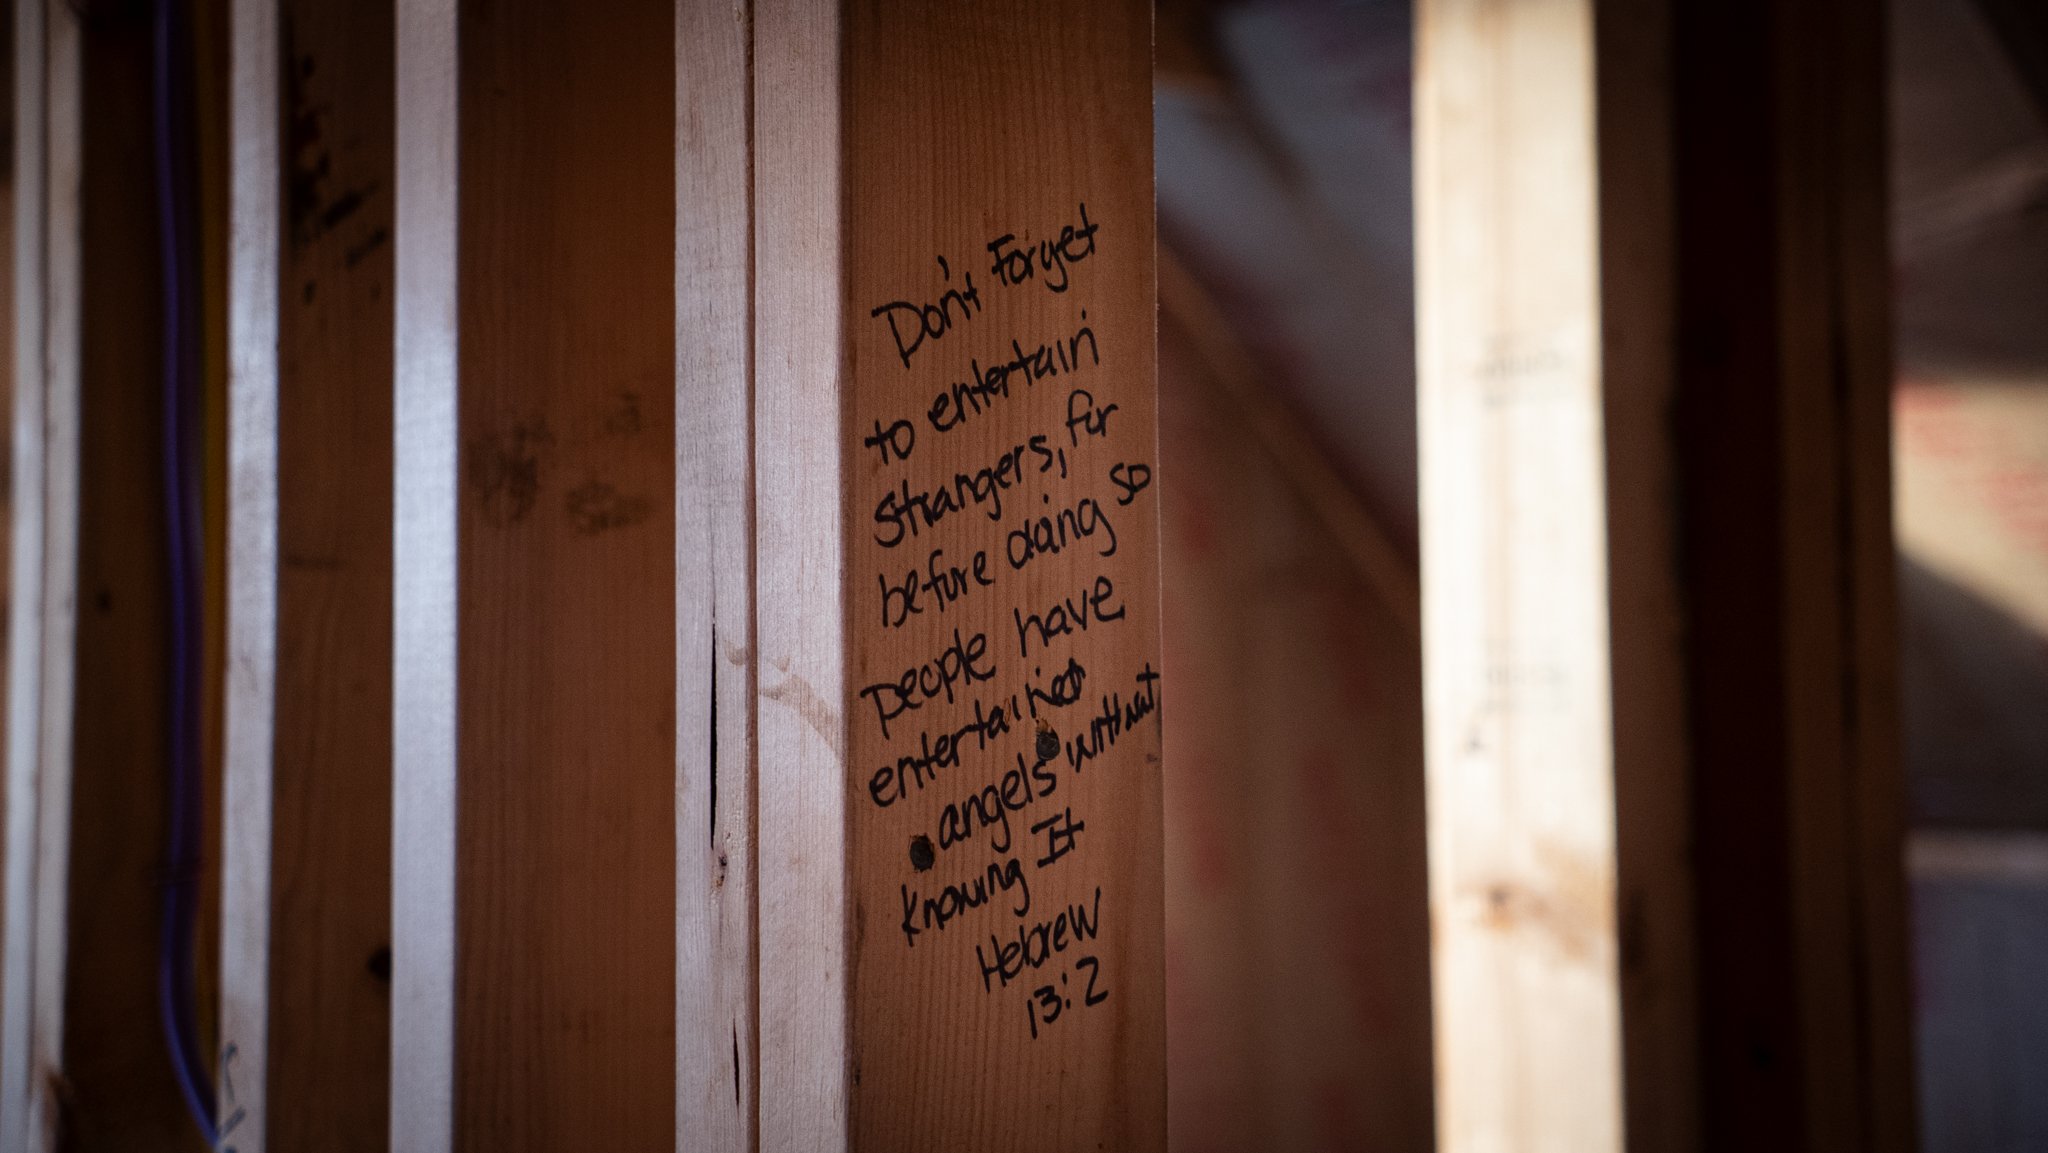 Don't Forget
to entertain
strangers, for
before doing so
people have
entertained
angels without
knowing It
Hebrew
13:2